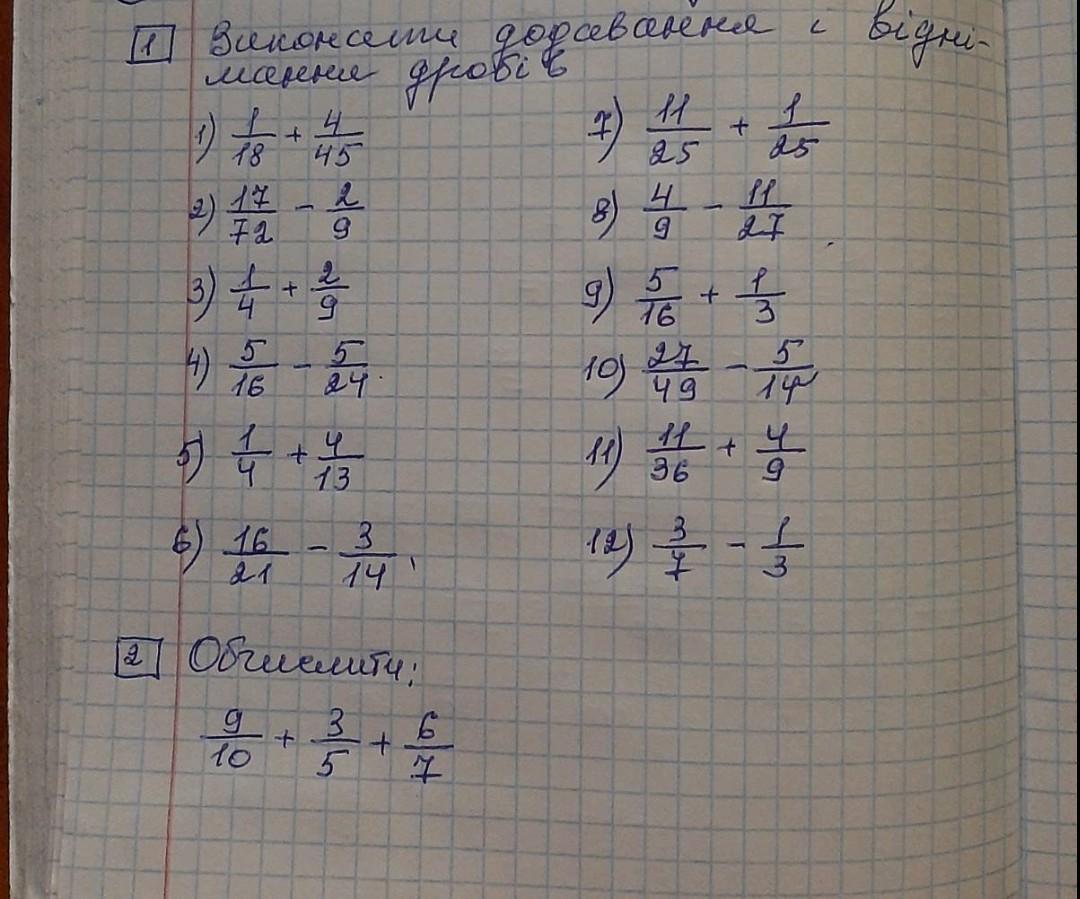 1 Виконати додавання і відні-
мання дробів
1) 1/18 + 4/45
2) 17/72 - 2/9
3) 1/4 + 2/9
4) 5/16 - 5/24
5) 1/4 + 4/13
6) 16/21 - 3/14
7) 11/25 + 1/25
8) 4/9 - 11/27
9) 5/16 + 1/3
10) 27/49 - 5/14
11) 11/36 + 4/9
12) 3/7 - 1/3
2 Обчислити:
9/10 + 3/5 + 6/7